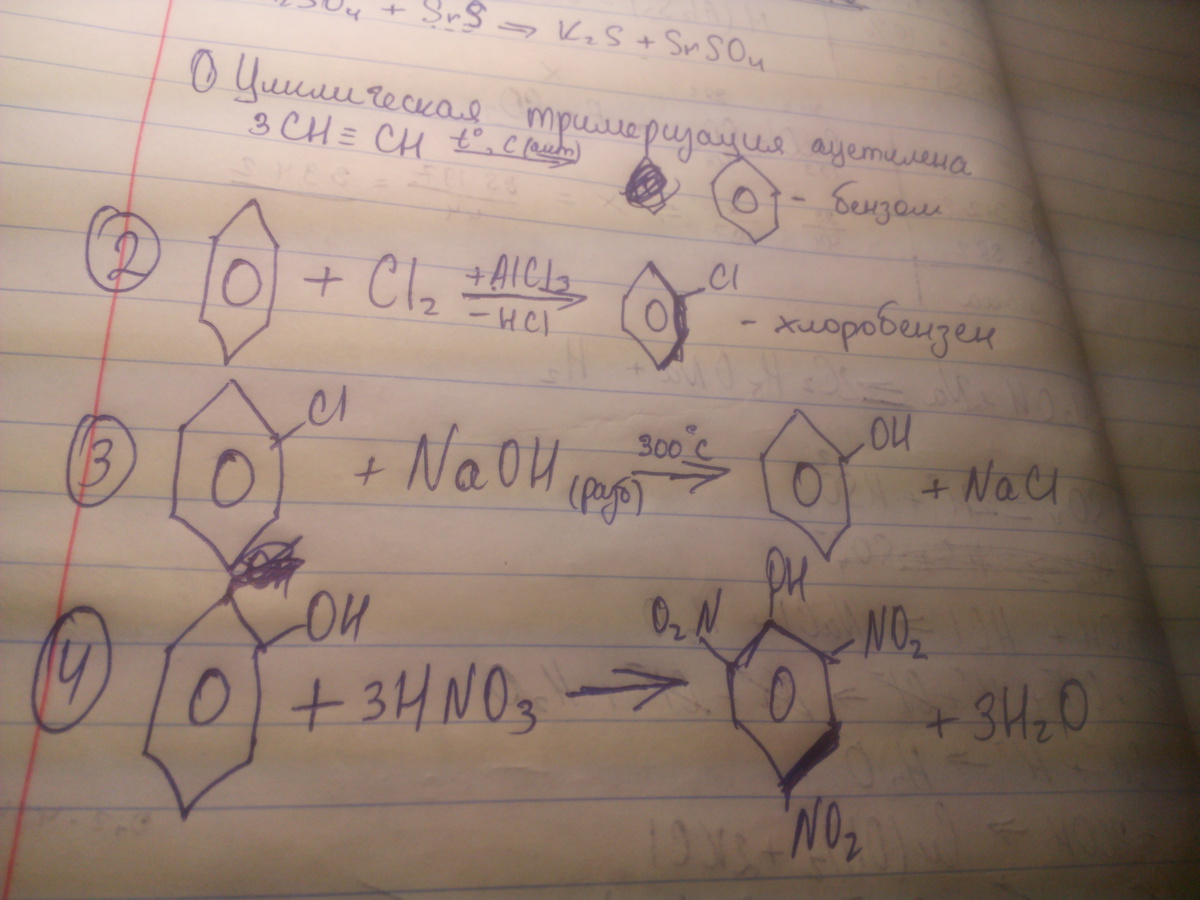 2SO4 + SrS ⇒ K2S + SrSO4
1) Циклическая тримеризация ацетилена
3CH≡CH t°, C(акт)
- бензол
2 + Cl2 +AlCl3 -HCl Cl
- хлоробензен
3 Cl + NaOH (разб) 300°C OH + NaCl
4 OH + 3HNO3 → OH O2N NO2 NO2 + 3H2O